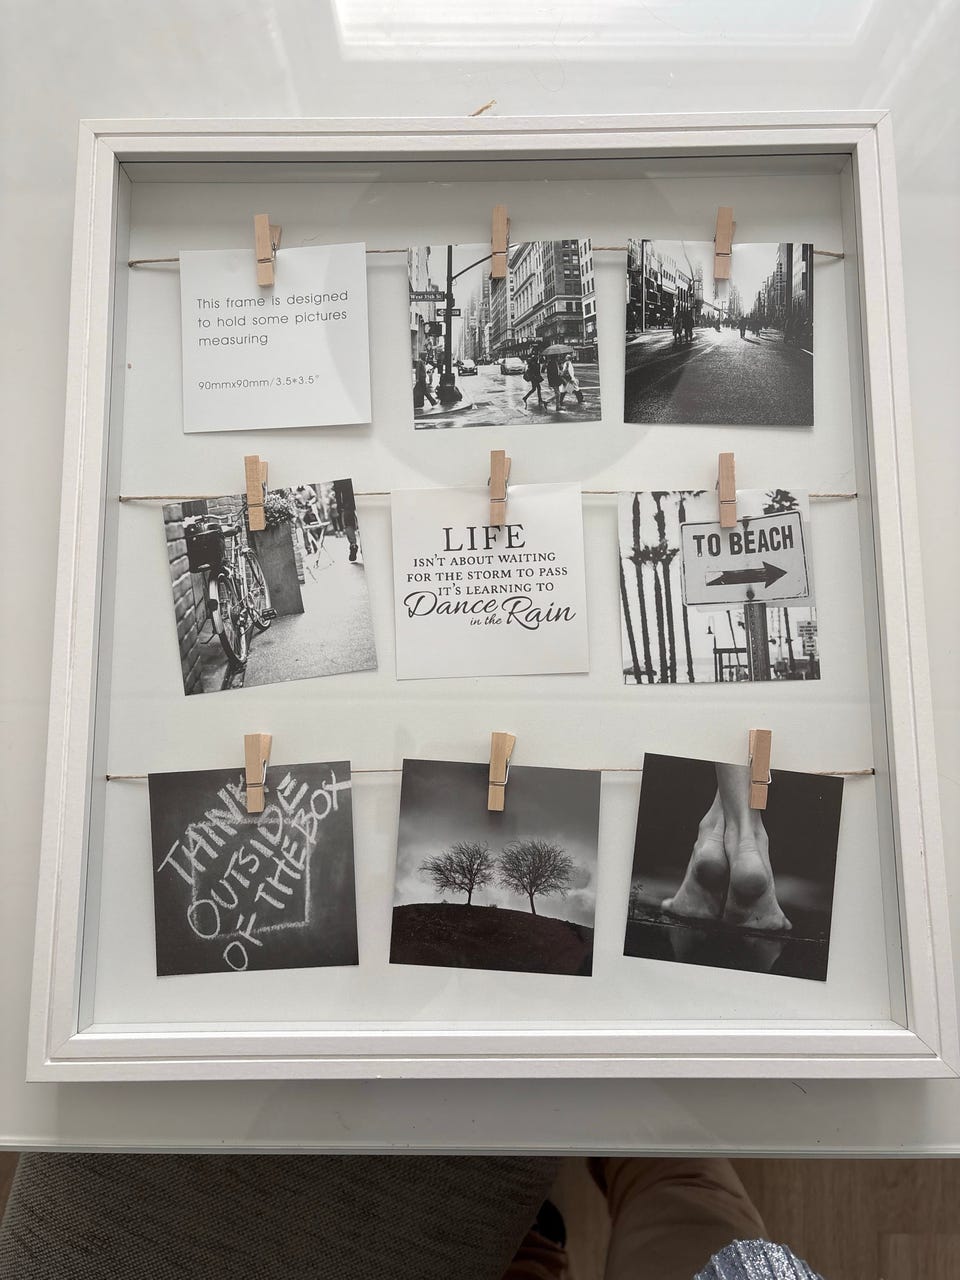 This frame is designed
to hold some pictures
measuring
90mmx90mm/3.5*3.5"
West 35th St
LIFE
ISN'T ABOUT WAITING
FOR THE STORM TO PASS
IT'S LEARNING TO
Dance
in the Rain
TO BEACH
THINK
OUTSIDE
OF THE BOX